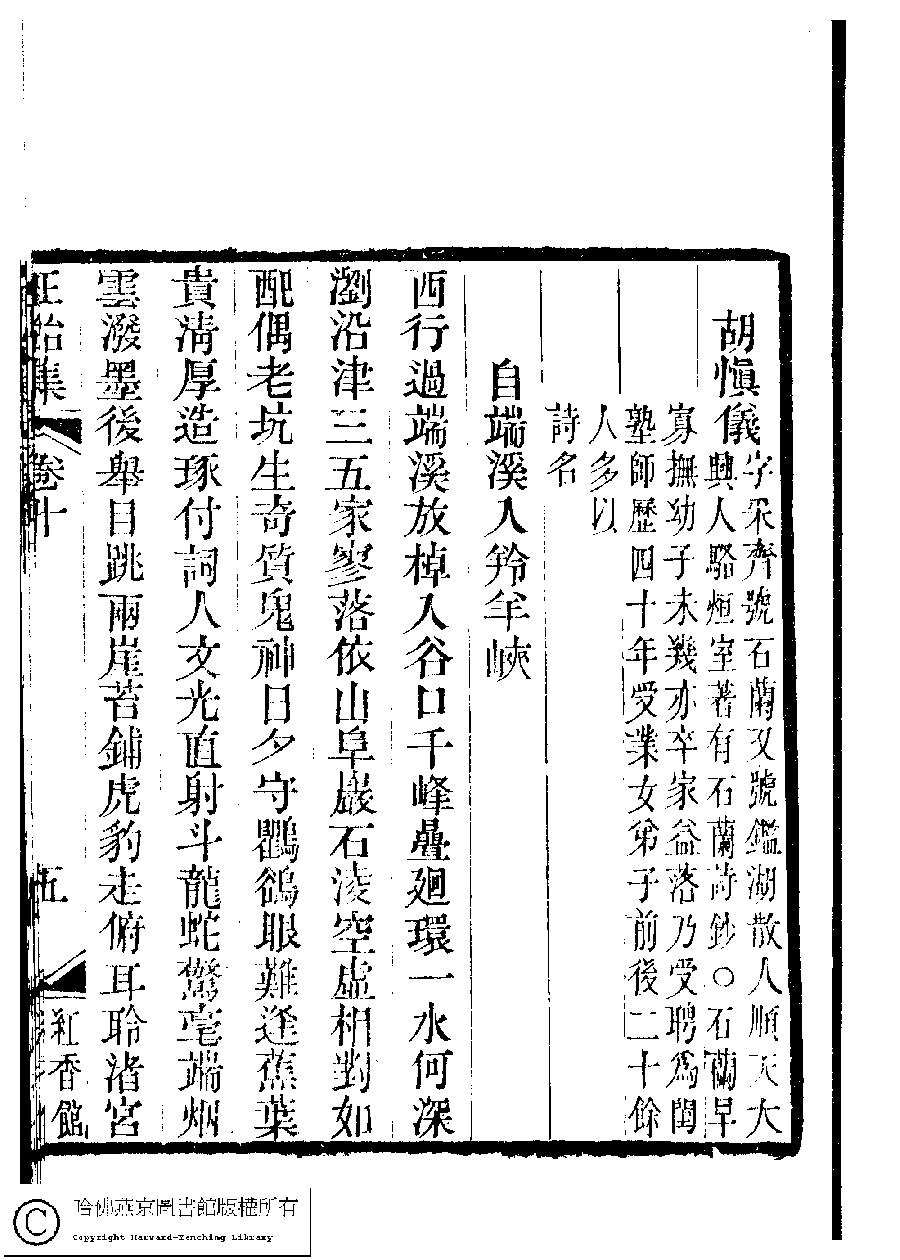 胡慎儀字采齊號石蘭又號鑑湖散人順天大
興人駱烜室著有石蘭詩鈔○石蘭早
寡撫幼子未幾亦卒家益落乃受聘為閨
塾師歷四十年受業女弟子前後二十餘
人多以
詩名
自端溪入羚羊峽
西行過端溪放棹入谷口千峰疊廻環一水何深
瀏沿津三五家寥落依山阜巖石淩空虛相對如
配偶老坑生奇質鬼神日夕守鸜鵒眼難逢蕉葉
貴清厚造琢付詞人文光直射斗龍蛇驚毫端烟
雲潑墨後舉目跳兩崖苔鋪虎豹走俯耳聆渚宮
正始集 卷十 五 紅香館
哈佛燕京圖書館版權所有
Copyright Harvard-Yenching Library